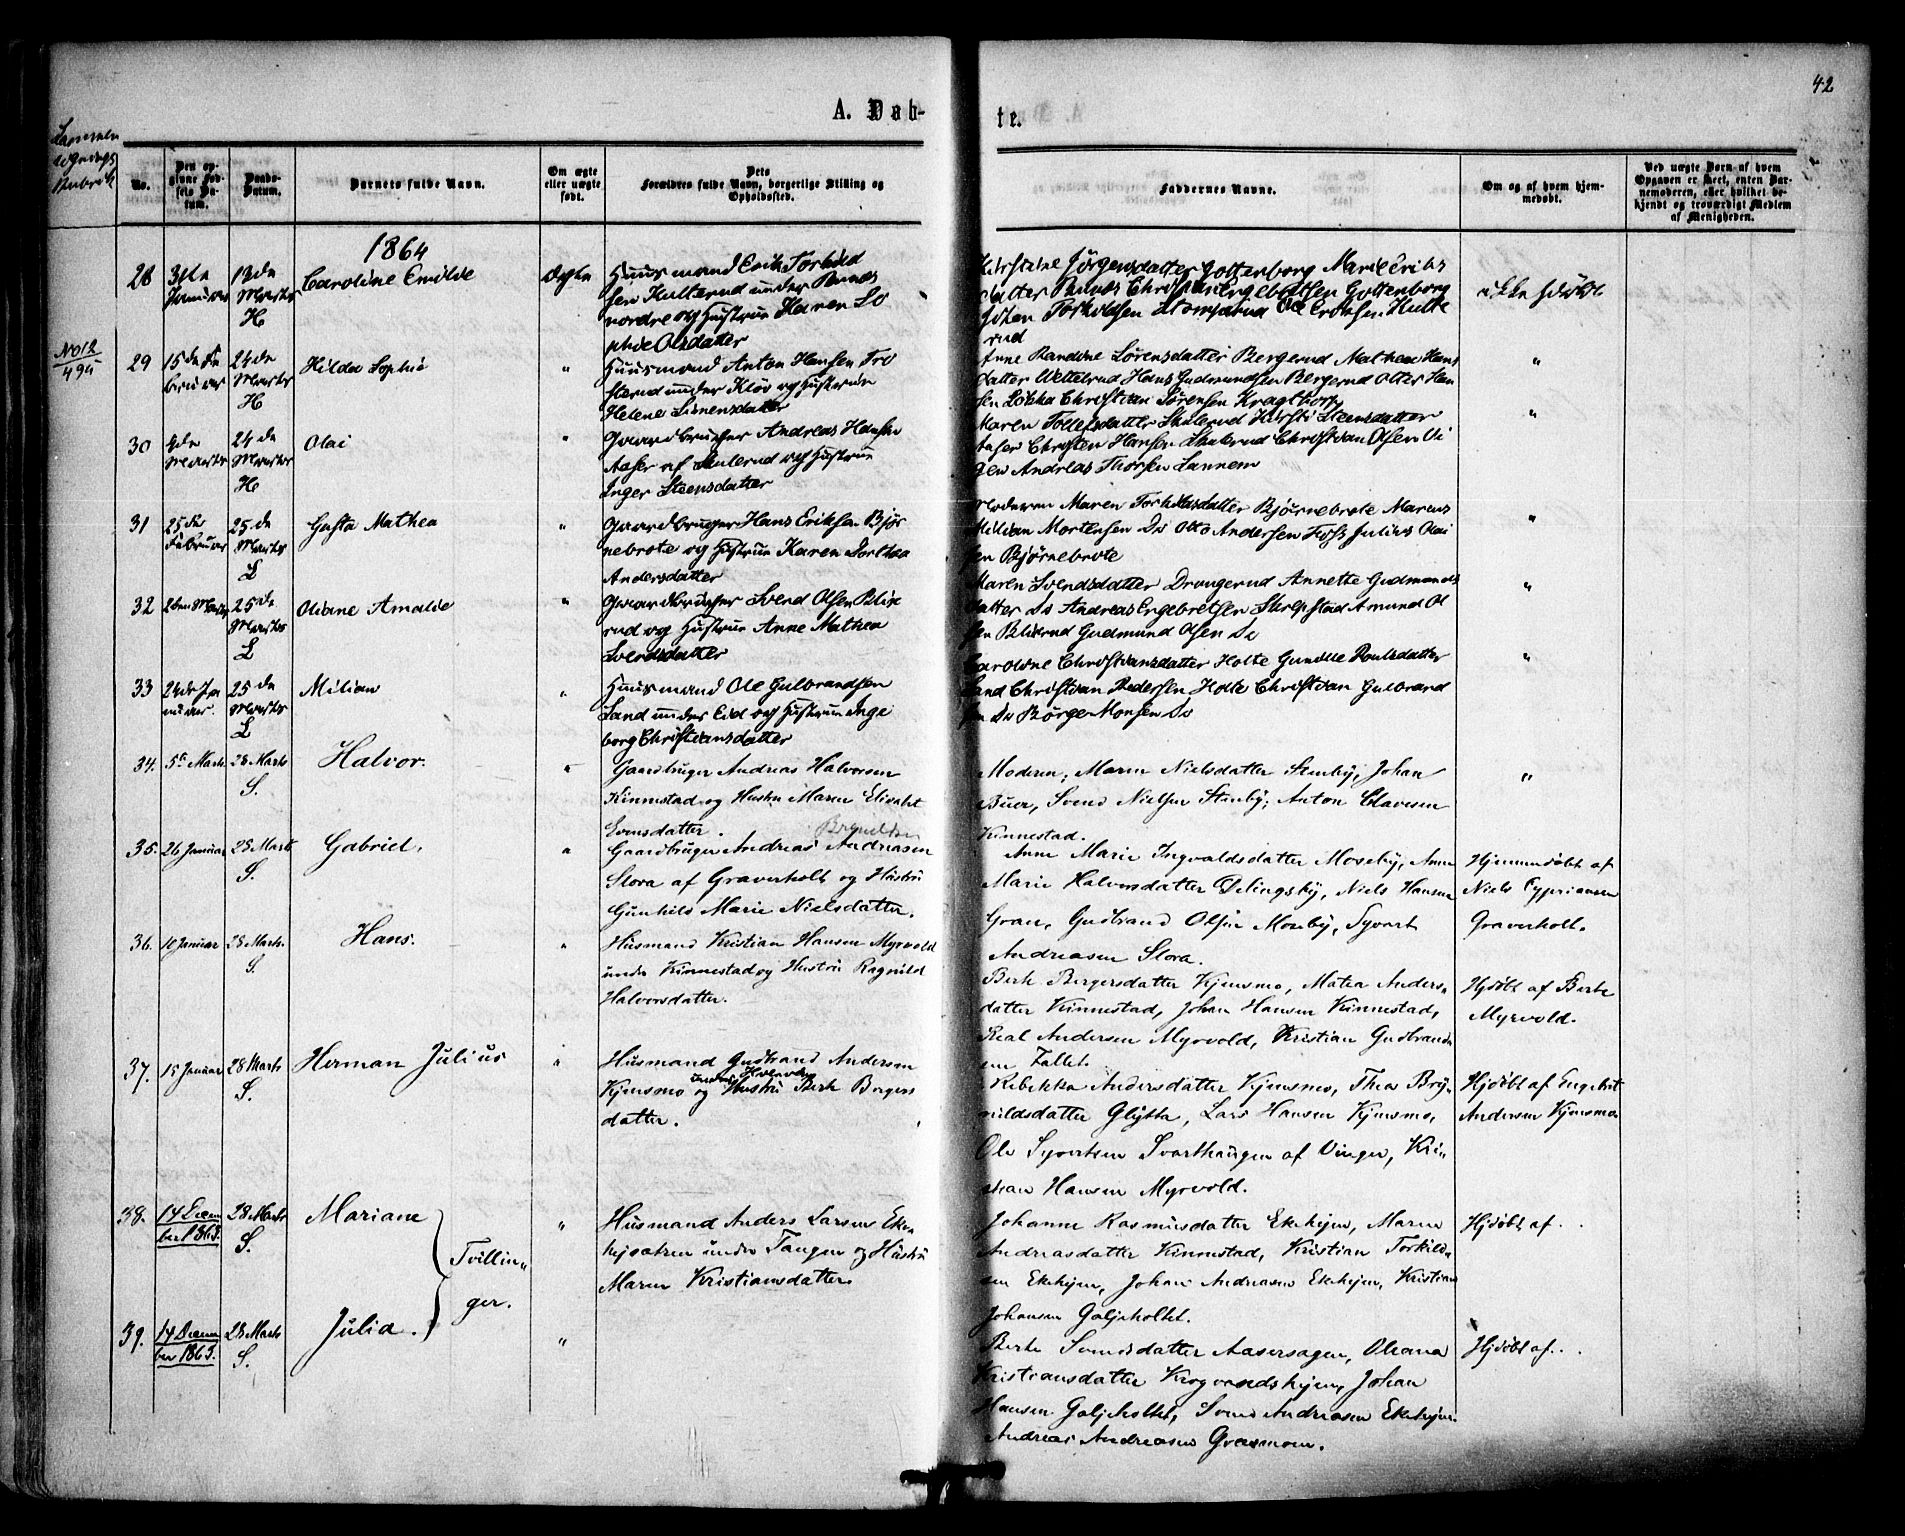 42
A. Døb-
te.
No.
Den opgivne Fødsels Datum.
Daabs-Datum.
Barnets fulde Navn.
Om ægte eller uægte født.
Dets Forældres fulde Navn, borgerlige Stilling og Opholdssted.
Faddernes Navne.
Om og af hvem hjemmedøbt.
Ved uægte Barn af hvem Opgaven er skeet, enten Barnemoderen, eller hvilket bekjendt og troværdigt Medlem af Menigheden.
1864
28
13de
Marts
H
Caroline Emilie
Ægte
Huusmand Erik Torkild
sen Kulterud under
nordre og Hustrue Karen So
phie Olsdatter
Kirstine Jørgensdatter Gottenborg Marie Eriks
datter Christian Engebretsen Gottenborg
Johan Torkildsen Ole Eriksen Kulte
rud
ikke hjdøbt
No12
494
29
15de Fe
bruar
24de
Marts
H
Hilda Sophie
"
Huusmand Anton Hansen Tro
sterud under Kløv og Hustrue
Helene Simensdatter
Anne Randine Sørensdatter Bergerud Mathea Hans
datter Wettelrud Hans Gudmundsen Bergerud Otter Han
sen Løkka Christian Sørensen Kragtorp
"
30
Marts
24de
Marts
H
Olai
"
Gaardbruger Andreas Hansen
Aaser af Skulerud og Hustrue
Inger Steensdatter
Maren Tollefsdatter Skulerud Kirsti Steensdatter
Aaser Christen Hansen Skulerud Christian Olsen Vi
gen Andreas Thorsen Lannem
"
31
25de
Februar
25de
Marts
L
Gusta Mathea
"
Gaardbruger Hans Eriksen Bjør
nebrote og Hustrue Karen Dorthea
Andersdatter
Moderen Maren Torkildsdatter Bjørnebrote Marcus
Milian Mortensen Do Otto Andersen Foss Julius Olai
sen Bjørnebrote
"
32
25de
Marts
L
Oliane Amalie
"
Gaardbruger Svend Olsen Blix
rud og Hustrue Anne Mathea
Svendsdatter
Maren Svendsdatter Drangerud Annette Gudmunds
datter Do Andreas Engebretsen Skrepstad Amund Ol
sen Blixrud Gudmund Olsen Do
"
33
24de Ja
nuar.
25de
Marts
L
Milian
"
Huusmand Ole Gulbrandsen
Sand under Eid og Hustrue Inge
borg Christiansdatter
Caroline Christiansdatter Holte Gunille Poulsdatter
Sand Christian Pedersen Holte Christian Gulbrand
sen Do Børge Monsen Do
"
34.
5te Marts
28 Marts
S.
Halvor.
"
Gaardbruger Andreas Halvorsen
Kinnestad og Hustru Maren Elisabet
Evensdatter.
Moderen, Maren Nielsdatter Stenby, Johan
Buer, Svend Nielsen Stenby, Anton Clavesen
Kinnestad.
"
35.
26 Januar
28 Marts
S.
Gabriel.
"
Brynildsen
Gaardbruger Andreas Andreasen
Slora af Graverholt og Hustru
Gunhild Marie Nielsdatter.
Anne Marie Ingvaldsdatter Moseby, Anne
Marie Halvorsdatter Delingsby, Niels Hansen
Gran, Gudbrand Olsen Moseby, Syvert
Andreasen Slora.
Hjemmedøbt af
Niels Cypriansen
Graverholt.
36.
10 Januar
28 Marts.
S.
Hans.
"
Husmand Kristian Hansen Myrvold
under Kinnestad og Hustru Ragnild
Halvorsdatter.
Berte Børgersdatter Kjensmo, Matea Anders-
datter Kinnestad, Johan Hansen Kinnestad,
Real Andersen Myrvold, Kristian Gudbrand
sen Fallet.
Hjdøbt af Berte
Myrvold.
37.
15 Januar
28 Marts
S.
Herman Julius
"
Husmand Gudbrand Andersen
Kjensmo og Hustru Berte Børgers
datter.
Rebekka Andersdatter Kjensmo, Thea Bry-
nildsdatter Glytta, Lars Hansen Kjensmo,
Ole Syvertsen Svarthaugen af Vinger, Kri-
stian Hansen Myrvold.
Hjdøbt af Engebret
Andersen Kjensmo
38.
14 Decem
ber 1863.
28 Marts
S.
Mariane
Tvillin-
ger.
"
Husmand Anders Larsen Eke-
hejsætren under Tangen og Hustru
Maren Kristiansdatter
Johanne Rasmusdatter Ekehejen, Maren
Andreasdatter Kinnestad, Kristian Torkild-
sen Ekehejen, Johan Andreasen Ekehejen, Kristian
Johansen Galjeholtet.
Hjdøbt af . .
39.
14 Decem
ber 1863.
28 Marts
S.
Julia.
"
Berte Svendsdatter Aasersagen, Oleana
Kristiansdatter Krogvandshejen, Johan
Hansen Galjeholtet, Svend Andreasen Ekehejen.
Andreas Andreasen Græsmoen.
Hjdøbt af . .